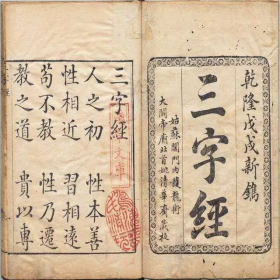 乾隆戊戌新鐫
三字經
姑蘇閶門內護龍街
大關帝廟北首姚清華齋發校
三字經
人之初 性本善
性相近 習相遠
苟不教 性乃遷
教之道 貴以專